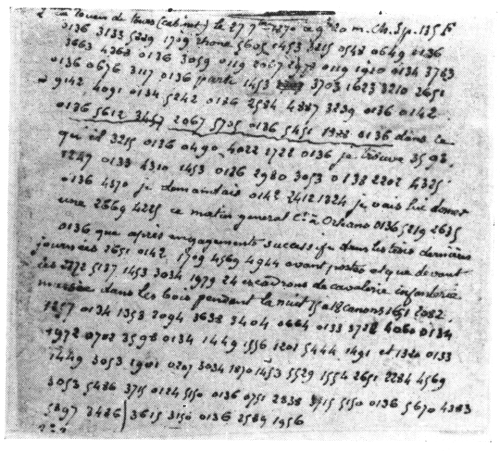 de tours (cabinet) le 27 7bre 1870 à 9h 20 m. Ch. Sp. 135 F
0136 3133 1709 5605 1453 3215 0548 0649
3663 4362 0136 3059 0119 2067 0119 1920 0134 3753
0136 0676 3117 0136 parti 1453 3703 1623 3210 2651
9142, 4091 0134 5242 0136 2584 4887 3239 0136 0142
0136 5612 3457 2067 5705 0136 5451 1922 0136 dans ce
qui est 3215 0136 0490, 4022 1722 0136 je trouve 3598,
1249 0133 4310 1453 0126 2980 3053 0138 2202 4325
0136 4570 je demandais 0142 2412 1324 je vais lui donner
une 2669 4225 ce matin general Ct à Orléans 0136 5219 2635
0136 que après engagements successifs dans les trois dernières
journées 2651 0142 1709 4569 4944 avant postes et que devant
les 2272 5137 1453 3034 1979 24 escadrons de cavalerie infanterie
massée dans les bois pendant la nuit 15 à 18 canons 1651 2082
1257 0134 1353 2094 3638 3404 0664 0133 3728 4060 0134
1972 0702 3598 0134 1449 1556 1201 5444 1491 et 1320 0133
1449 3053 1901 0207 3034 1870 1453 5529 1554 2651 2284 4569
3053 5486 3715 0124 5150 0136 0751 2838 3715 5150 0136 5670 4383
5897 3486 3615 3150 0136 2589 1956